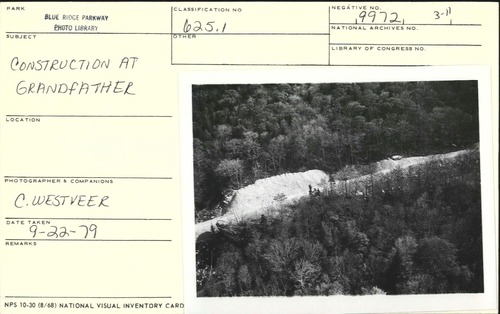 PARK
BLUE RIDGE PARKWAY
PHOTO LIBRARY
CLASSIFICATION NO
625.1
NEGATIVE NO.
9972 3-11
SUBJECT
OTHER
NATIONAL ARCHIVES NO.
LIBRARY OF CONGRESS NO.
CONSTRUCTION AT
GRANDFATHER
LOCATION
PHOTOGRAPHER & COMPANIONS
C. WESTVEER
DATE TAKEN
9-22-79
REMARKS
NPS 10-30 (8/68) NATIONAL VISUAL INVENTORY CARD